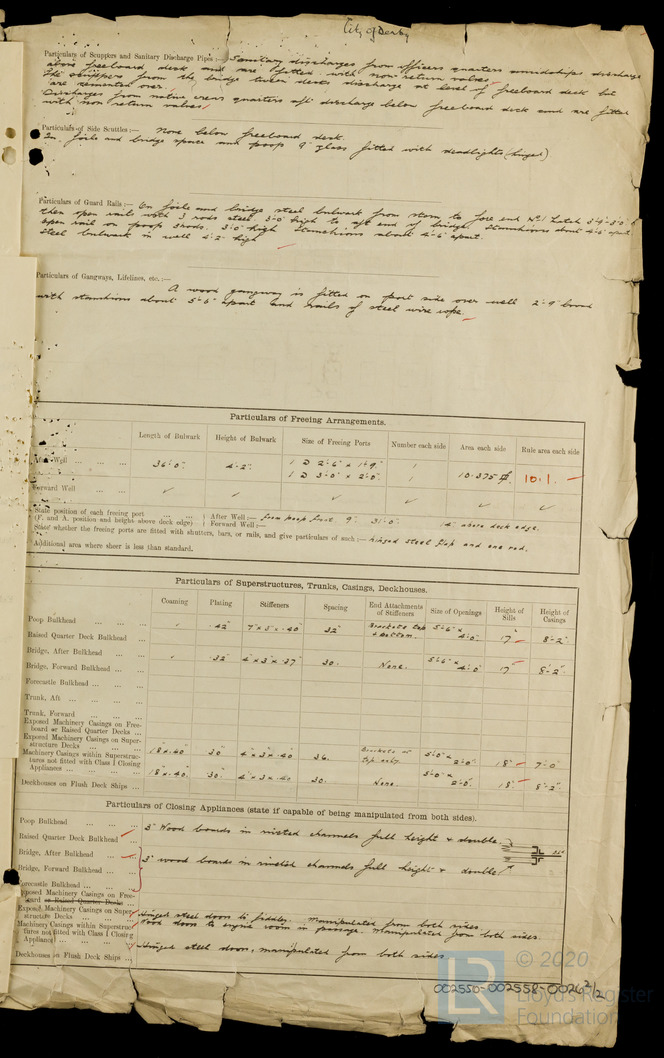 City of Derby
Particulars of Scuppers and Sanitary Discharge Pipes:— Sanitary discharges from officers quarters amidships discharge
above freeboard deck and are fitted with non return valves
The scuppers from the bridge tween decks discharge at level of freeboard deck but
are cemented over.
Discharges from native crews quarters aft discharge below freeboard deck and are fitted
with non return valves
Particulars of Side Scuttles:— None below freeboard deck.
In fo'c'sle and bridge space and poop 9" glass fitted with deadlights (hinged)
Particulars of Guard Rails:— On fo'c'sle and bridge steel bulwark from stem to fore end No 1 hatch
then open rails with 3 rods steel. 3'-0" high to aft end of bridge. Stanchions about 4'-6" apart
open rail on poop 3 rods. 3'-0" high Stanchions about 4'-6" apart.
Steel bulwark in well 4'-2" high
Particulars of Gangways, Lifelines, etc.:—
A wood gangway is fitted on port side over well 2'-9" broad
with stanchions about 5'-6" apart and rails of steel wire rope.
Particulars of Freeing Arrangements.
Length of Bulwark Height of Bulwark Size of Freeing Ports Number each side Area each side Rule area each side
After Well 36'-0" 4'-2" 1 @ 2'-6" x 1'-9" 1
1 @ 3'-0" x 2'-0" 1 10.375 10.1
Forward Well
State position of each freeing port After Well:— From poop front 9' 31'-0" above deck edge.
(F. and A. position and height above deck edge) Forward Well:—
State whether the freeing ports are fitted with shutters, bars, or rails, and give particulars of such:— hinged steel flap and one rod.
Additional area where sheer is less than standard.
Particulars of Superstructures, Trunks, Casings, Deckhouses.
Coaming Plating Stiffeners Spacing End Attachments of Stiffeners Size of Openings Height of Sills Height of Casings
Poop Bulkhead .42" 7" x 3" x .40 32" Brackets top & bottom. 5'-6" x 4'-0" 17" 8'-2"
Raised Quarter Deck Bulkhead
Bridge, After Bulkhead .32" 4" x 3" x .37 30" None. 5'-6" x 4'-0" 17" 8'-2"
Bridge, Forward Bulkhead
Forecastle Bulkhead
Trunk, Aft
Trunk, Forward
Exposed Machinery Casings on Free-
board or Raised Quarter Decks
Exposed Machinery Casings on Super-
structure Decks 18 x .40 .30" 4" x 3" x .40 36. top only. 5'-0" x 2'-0" 18" 7'-0"
Machinery Casings within Superstruc-
tures not fitted with Class I Closing
Appliances 18" x .40 .30" 4" x 3" x .40 30. None. 5'-0" x 2'-0" 18" 8'-2"
Deckhouses on Flush Deck Ships
Particulars of Closing Appliances (state if capable of being manipulated from both sides).
Poop Bulkhead 3" Wood boards in riveted channels full height & double.
Raised Quarter Deck Bulkhead
Bridge, After Bulkhead 3" wood boards in riveted channels full height & double
Bridge, Forward Bulkhead
Forecastle Bulkhead
Exposed Machinery Casings on Free-
board or Raised Quarter Decks
Exposed Machinery Casings on Super-
structure Decks Hinged steel doors to fiddley. Manipulated from both sides
Machinery Casings within Superstruc-
tures not fitted with Class I Closing
Appliances door to engine room in passage. Manipulated from both sides.
Hinged steel door, manipulated from both sides
Deckhouses on Flush Deck Ships
LR
© 2020
Lloyd's Register
Foundation
002550-002558-0026 2/2